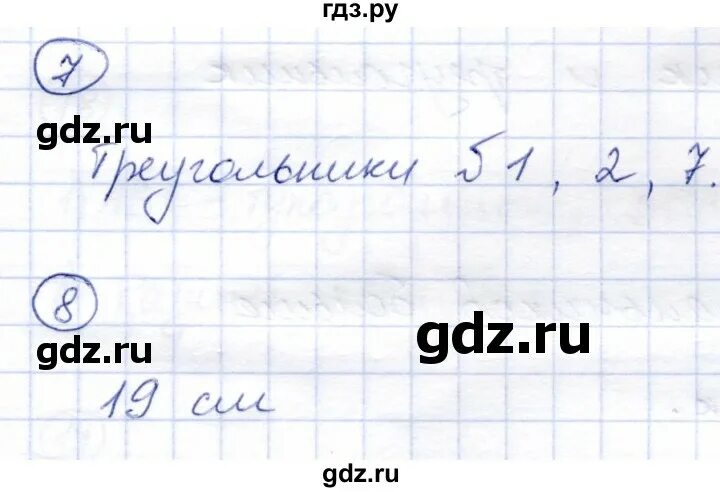 гдз.ру
7
gdz.ru
Треугольники б 1, 2, 7.
8
gdz.ru
gdz.ru
19 см
gdz.ru